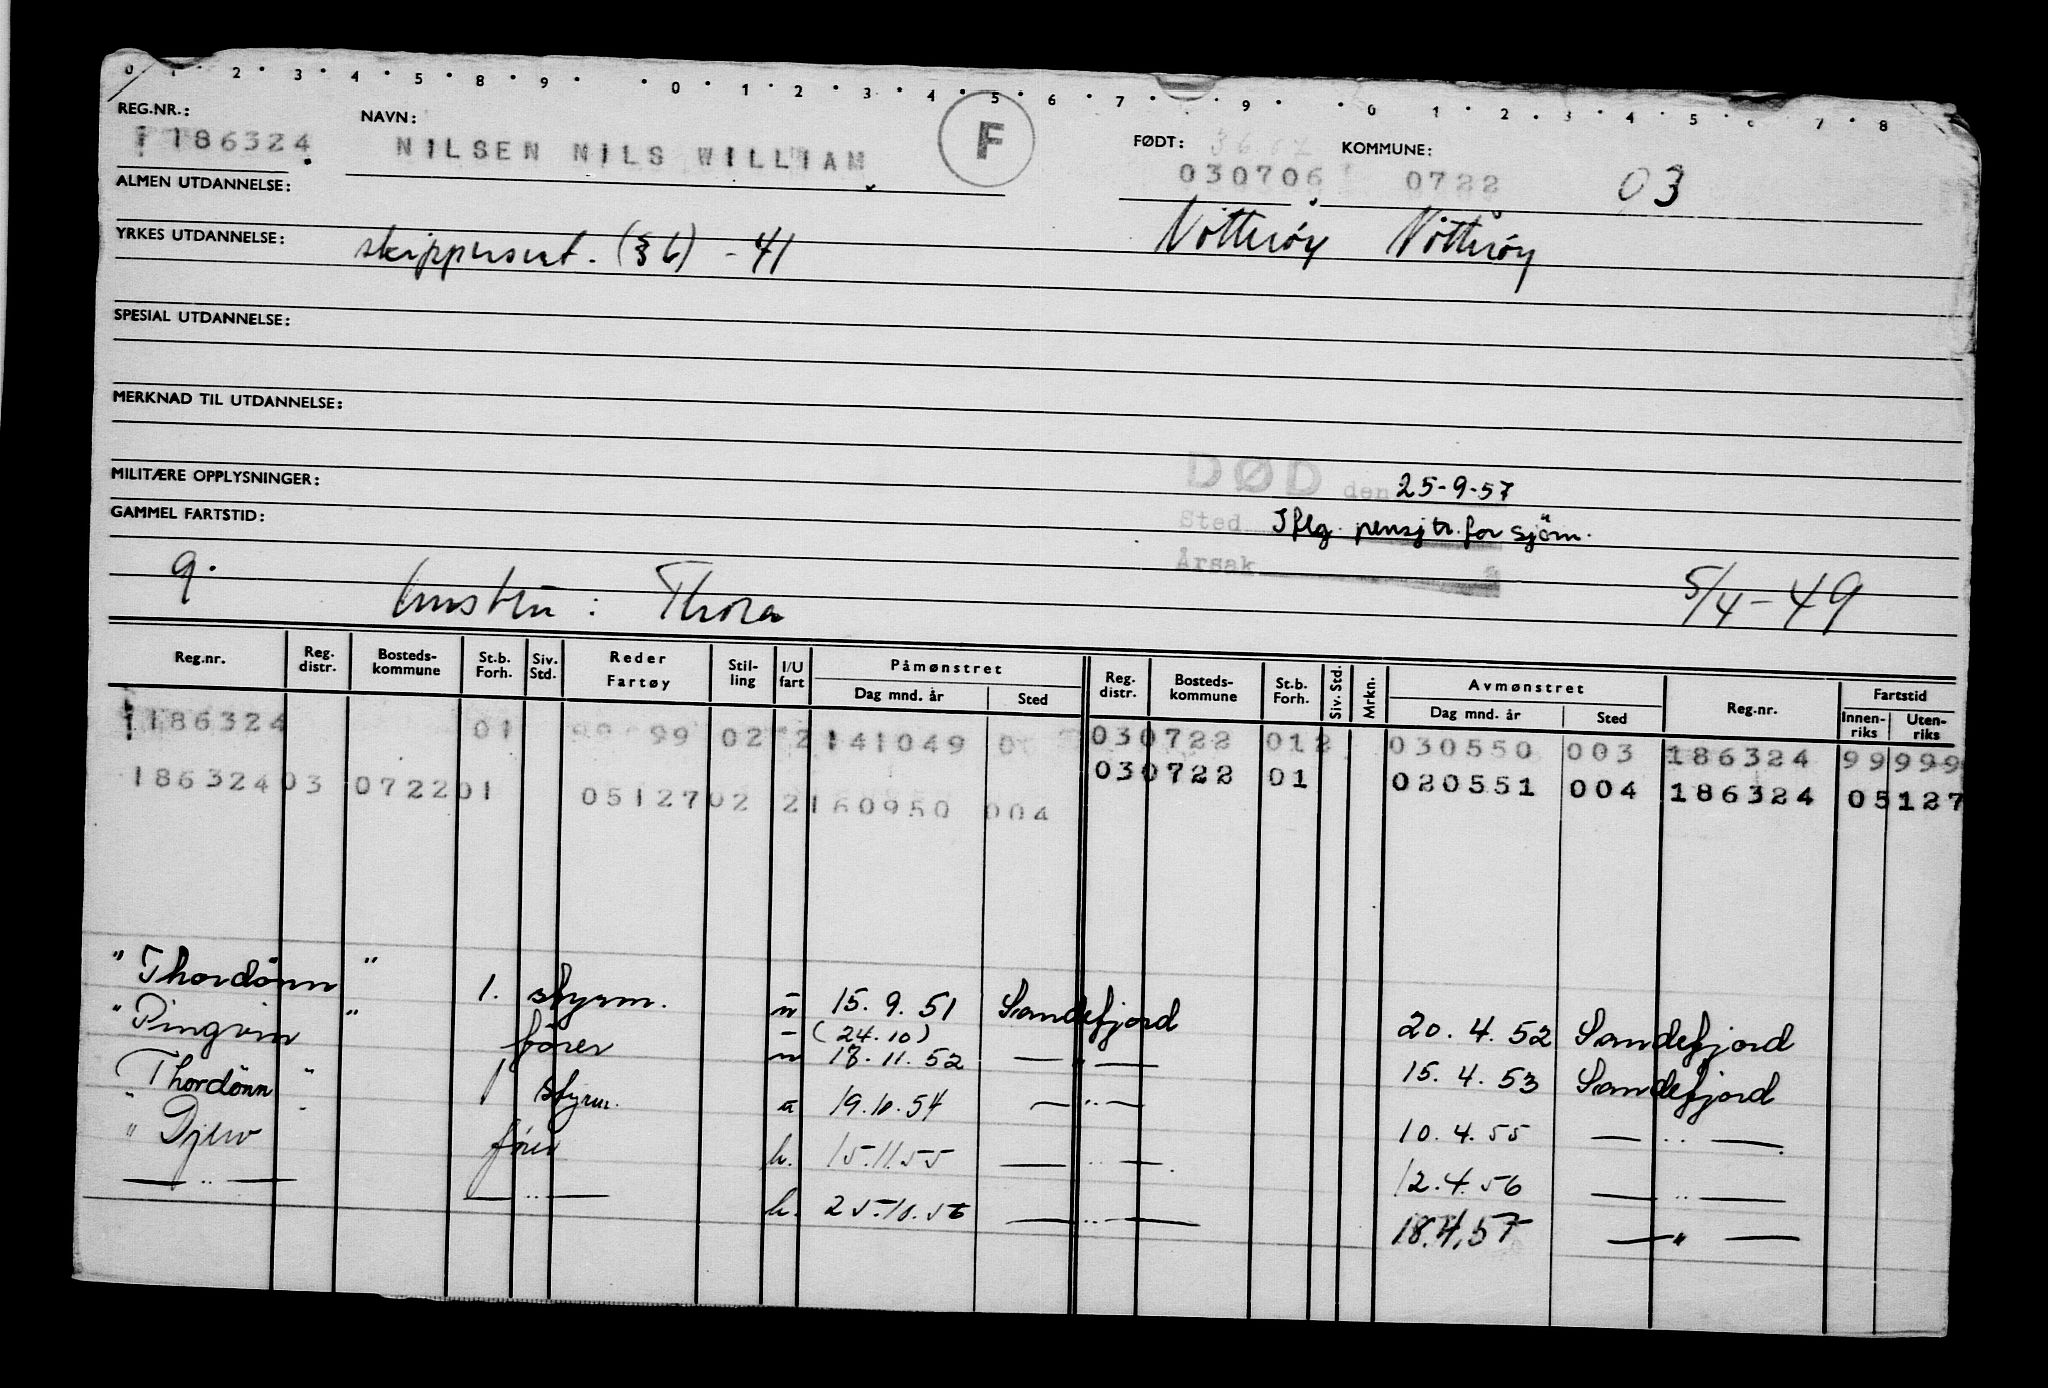 0 1 2 3 4 5 8 9 0 1 2 3 4 5 6 7 9 0 1 2 3 4 5 7 8
REG.NR.: NAVN: F FØDT: KOMMUNE:
186324 NILSEN NILS WILLIAM 030706 0722 03
ALMEN UTDANNELSE:
Nötteröy Nötteröy
YRKES UTDANNELSE: skippersert. (§6) - 41
SPESIAL UTDANNELSE:
MERKNAD TIL UTDANNELSE:
MILITÆRE OPPLYSNINGER: DØD den 25-9-57
GAMMEL FARTSTID: Sted Iflg. pensjtr. for sjöm.
Årsak
9. : Thora 5/4-49
Reg.nr. Reg. distr. Bosteds-kommune St.b. Forh. Siv. Std. Reder Fartøy Stil-ling I/U fart Påmønstret Reg. distr. Bosteds-kommune St.b. Forh. Siv. Std. Mrkn. Avmønstret Reg.nr. Fartstid
Dag mnd. år Sted Dag mnd. år Sted Innen-riks Uten-riks
186324 01 99 02 2 141049 030722 012 030550 003 186324 99999
186324 03 0722 01 0512702 2 160950 004 030722 01 020551 004 186324 05127
"Thordönn" 1. styrm. u 15.9.51 Sandefjord 20.4.52 Sandefjord
"Pingvin" förer (24.10) 18.11.52 — " — 15.4.53 Sandefjord
"Thordönn" 1 styrm. 19.10.54 — " — 10.4.55 — " —
"Djerv förer h. 15.11.55 — " — 12.4.56 — " —
— " — — " — h. 25.10.56 — " — 18.4.57 — " —